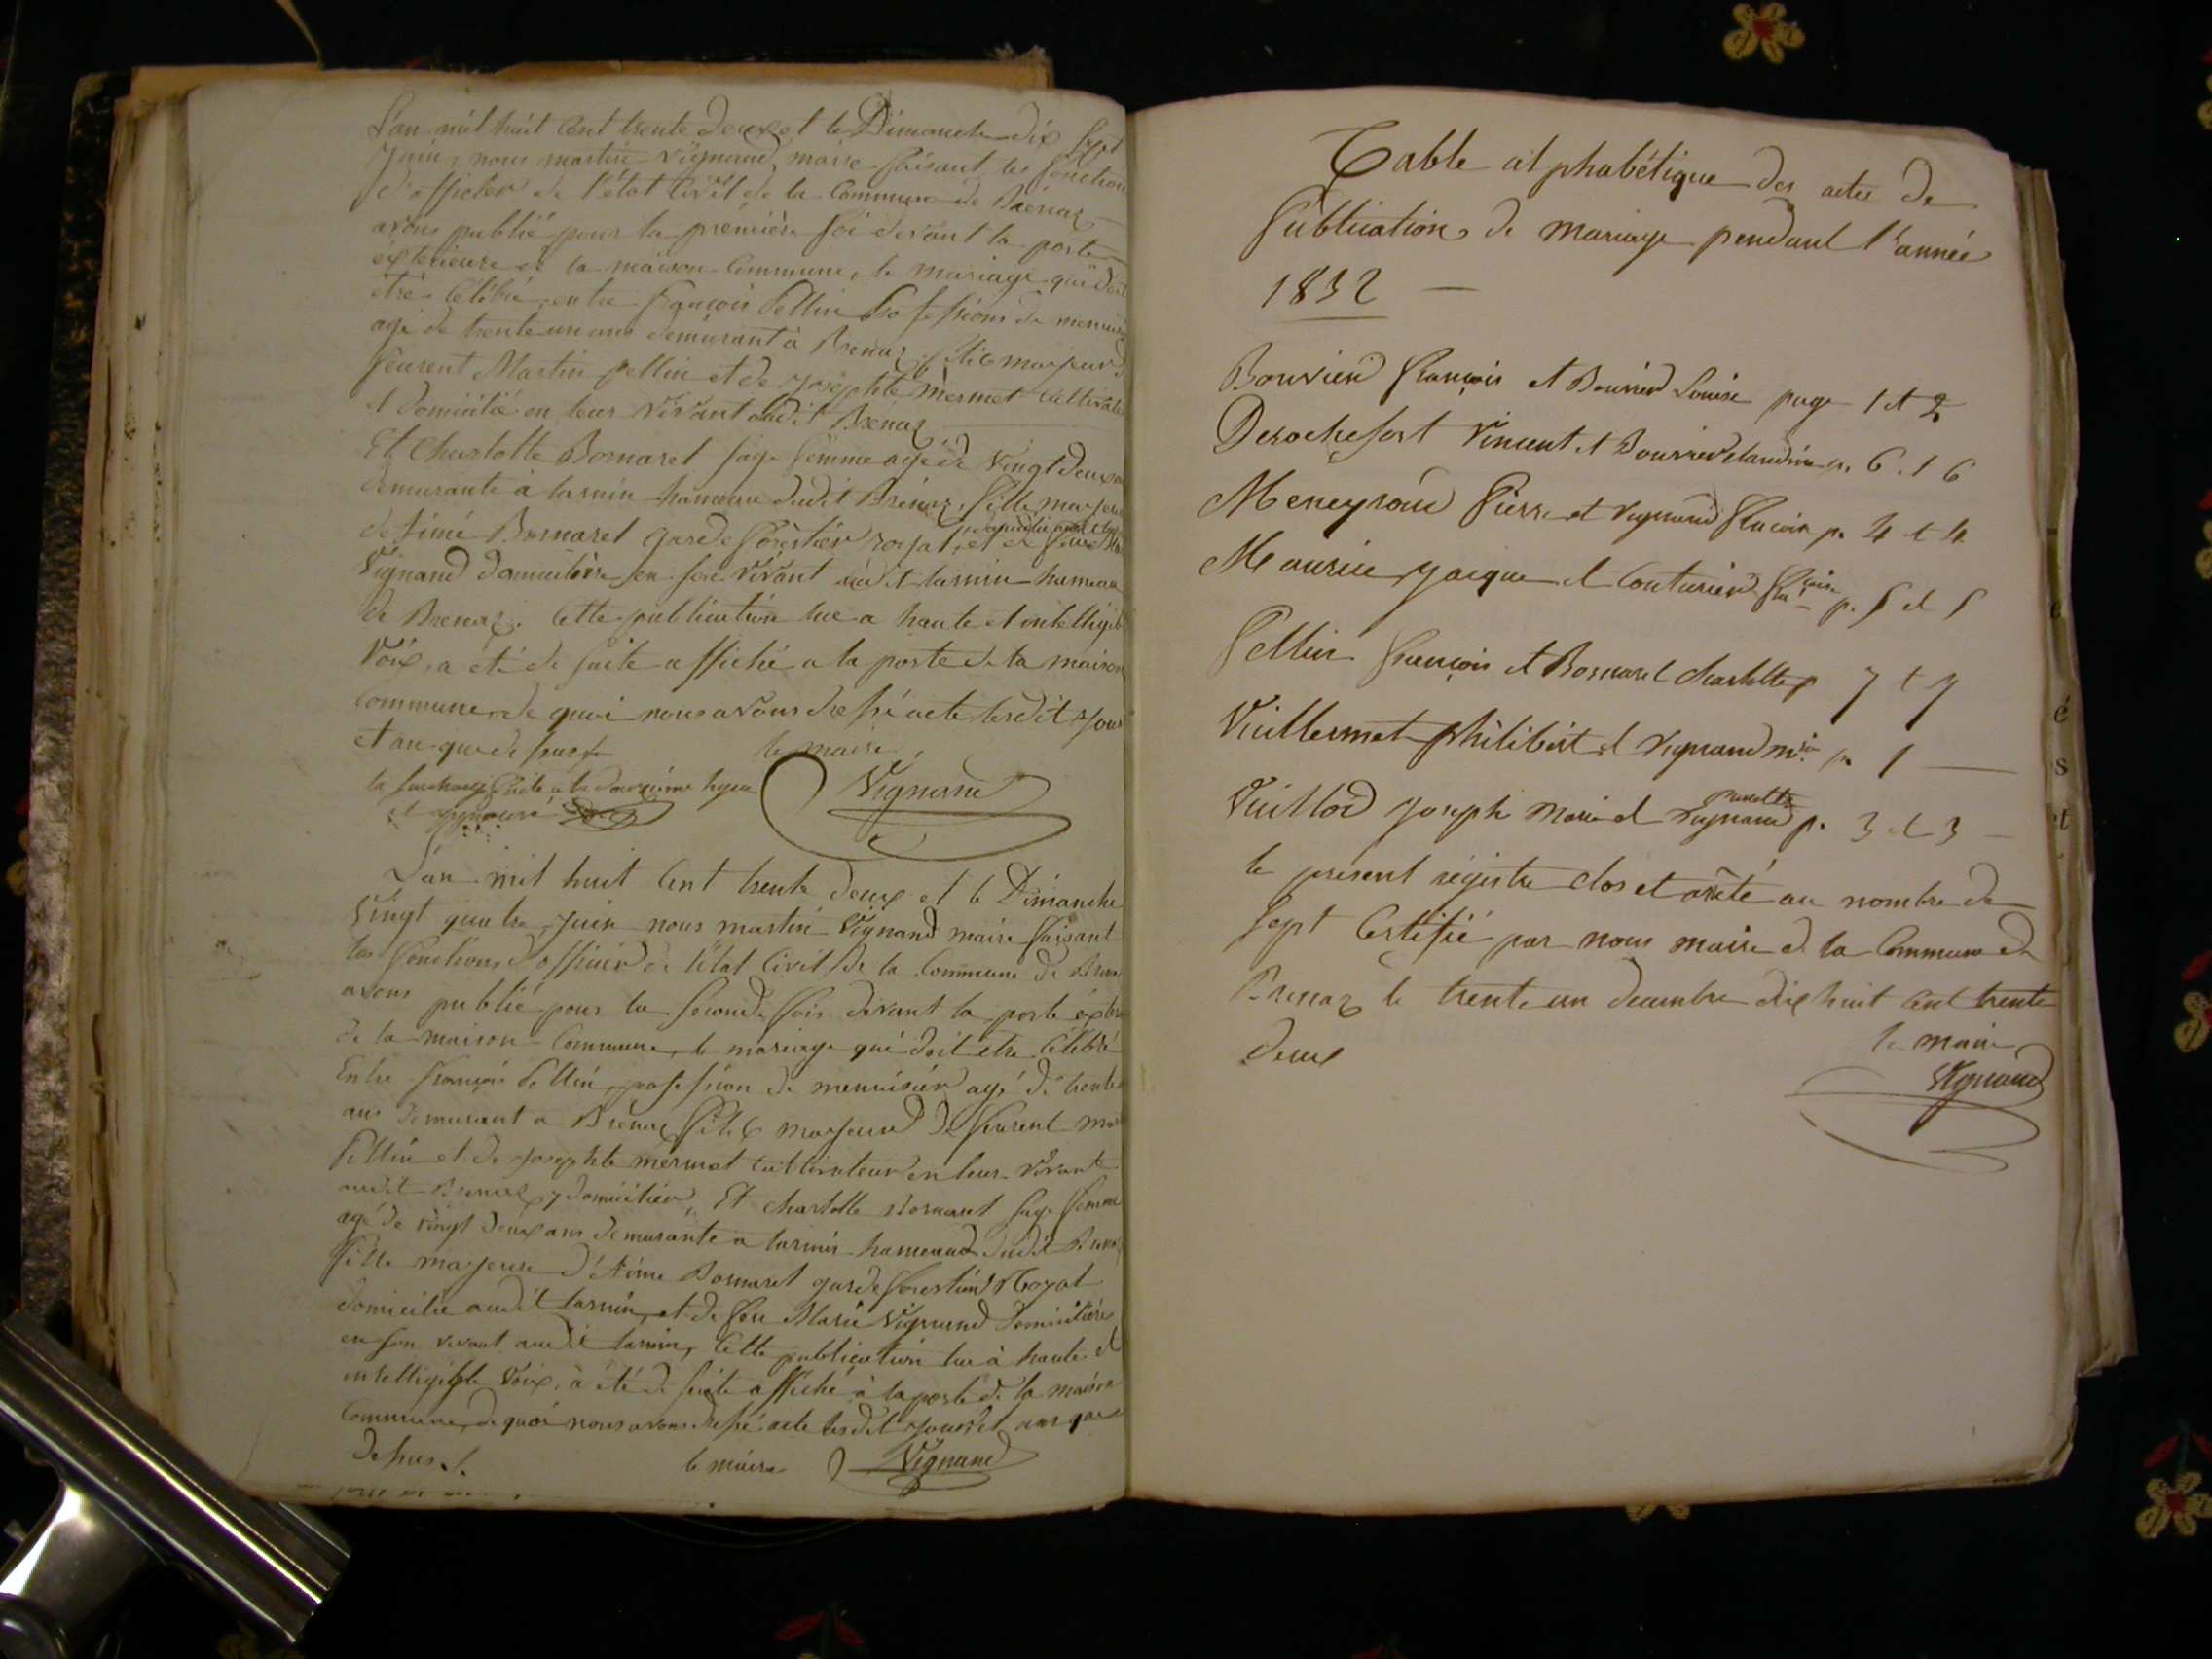 L'an mil huit Cent trente deux et le Dimanche dix Sept
Juin, nous martin Vignand, maire faisant les fonction
d'officier de l'état Civil de la Commune de Brénaz
avons publié pour la première foi devant la porte
éxterieure de la maison Commune, le mariage qui doit
étre Célébré, entre françois Pellin Profession de menuis
agé de trente un ans demurant à Brenaz, fils majeur
feurent Martin pellin et de Josephte Mermet Cultivate
et domicilié en leur vivant audit Brenaz
Et Charlotte Bornaret sage femme agé de Vingt deux a
demurante à larmin hameau dudit Brénaz, fille majeur
d'Aimé Bornaret garde forestier royal, et de feue
Vignand domiciliére en son vivant audit larmin hameau
de Brenaz. Cette publication lue a haute et intelligib
Voix, a été de suite affiché a la porte de la maison
commune, de quoi nous avons dressé acte lesdit jour
et an que de Sus
le maire
Vignand
la surcharge faite a la douzième ligne
et approuvé
L'an mil huit Cent trente deux et le Dimanche
Vingt quatre Juin nous martin Vignand maire faisant
les fonctions d'officier de l'état Civil de la Commune de Bren
avons publié pour la seconde fois devant la porte éxter
de la maison Commune, le mariage qui doit etre Célébré
Entre françois Pellin, profession de menuisier agé de trente
ans demurant a Brénaz fils majeur de feurent mar
Pellin et de Josephte mermet Cultivateur en leur vivant
audit Brenaz y domicilier, Et charlotte Bornaret sage femme
agé de vingt deux ans demurante a larmin hameau dudit Brenaz
fille majeure d'Aime Bornaret garde forestier Royal
domicilie audit larmin, et de feu Marie Vignand domiciliére
en son vivant audit larmin, Cette publication lue à haute et
intelligible Voix, à été de suite affiché à la porte de la maison
Commune, de quoi nous avons dressé acte lesdit jour et ans que
de sus.
le maire Vignand
Table alphabétique des actes de
Publication de mariage pendant l'année
1832
Bouvier françois et Bouvier Louise page 1 et 2
Derochefort Vincent et Bouvier Claudine p. 6 et 6
Meneyroud Pierre et Vignand p. 4 et 4
Maurice Jacque et Couturier p. 5 et 5
Pellin françois et Bornaret charlotte p 7 et 7
Vuillermet philibert et Vignand p. 1
Vuillod Joseph Marie et Vignand p. 3 et 3
le présent régistre clos et arrêté au nombre de
Sept Certifié par nous maire de la Commune de
Brenaz le trente un decembre dix huit cent trente
deux
le maire
Vignand